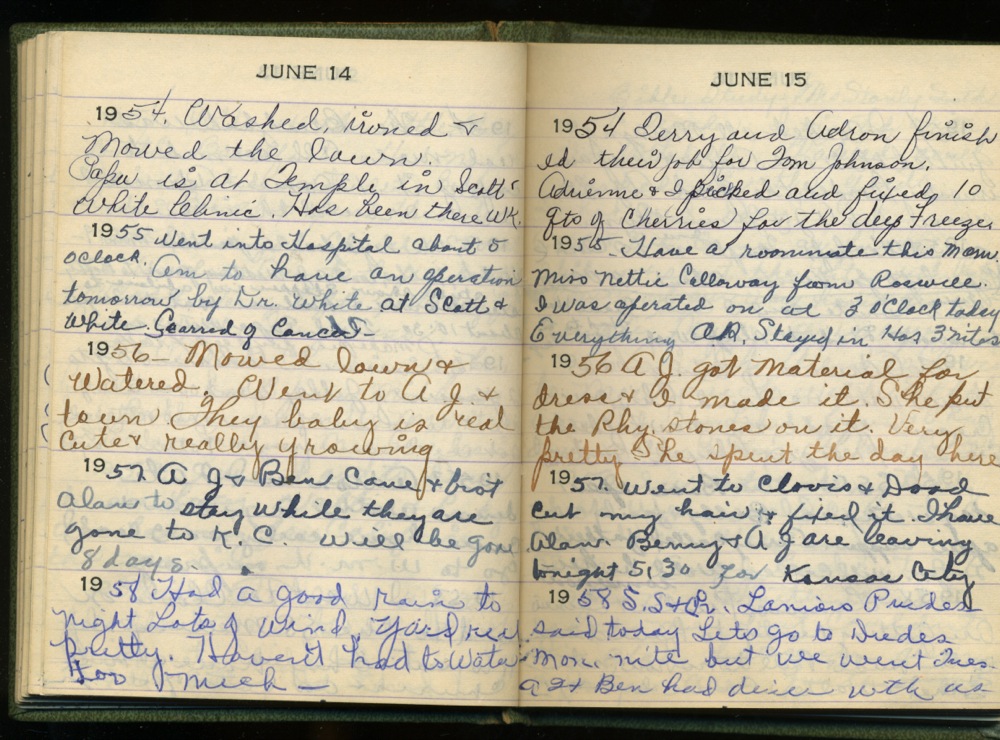 JUNE 14
1954. Washed, ironed &
Mowed the lawn.
Papa is at Temple in Scott &
White Clinic. Has been there wk.
1955 Went into Hospital about 5
oclock. Am to have an operation
tomorrow by Dr. White at Scott &
White. Scarred of Cancer
1956 - Mowed lawn &
Watered. Went to A.J. &
town They baby is real
Cute & really growing
1957 A J & Ben Came & brot
Alan to stay while they are
gone to K. C. Will be gone
8 days.
1958 Had a good rain to
night Lots of Wind. Yard real
pretty. Haven't had to Water
too much -
JUNE 15
1954 Jerry and Adron finish
ed their job for Tom Johnson.
Adrienne & I picked and fixed 10
qts of Cherries for the deep Freeze.
1955 - Have a roommate this Morn.
Miss Nettie Calloway from Roswell.
I was operated on at 3 O'Clock today
Everything OK. Stayed in Hos 3 nites
1956 A J. got Material for
dress & I made it. She put
the Rhy. stones on it. Very
pretty She spent the day here
1957. Went to Clovis & Dood
Cut my hair & fixed it. I have
Alan. Benny & A J are leaving
tonight 5:30 for Kansas City
1958 S.S. &
said today Lets go to
Mon. nite but we went Tues.
A J & Ben had dinner with us